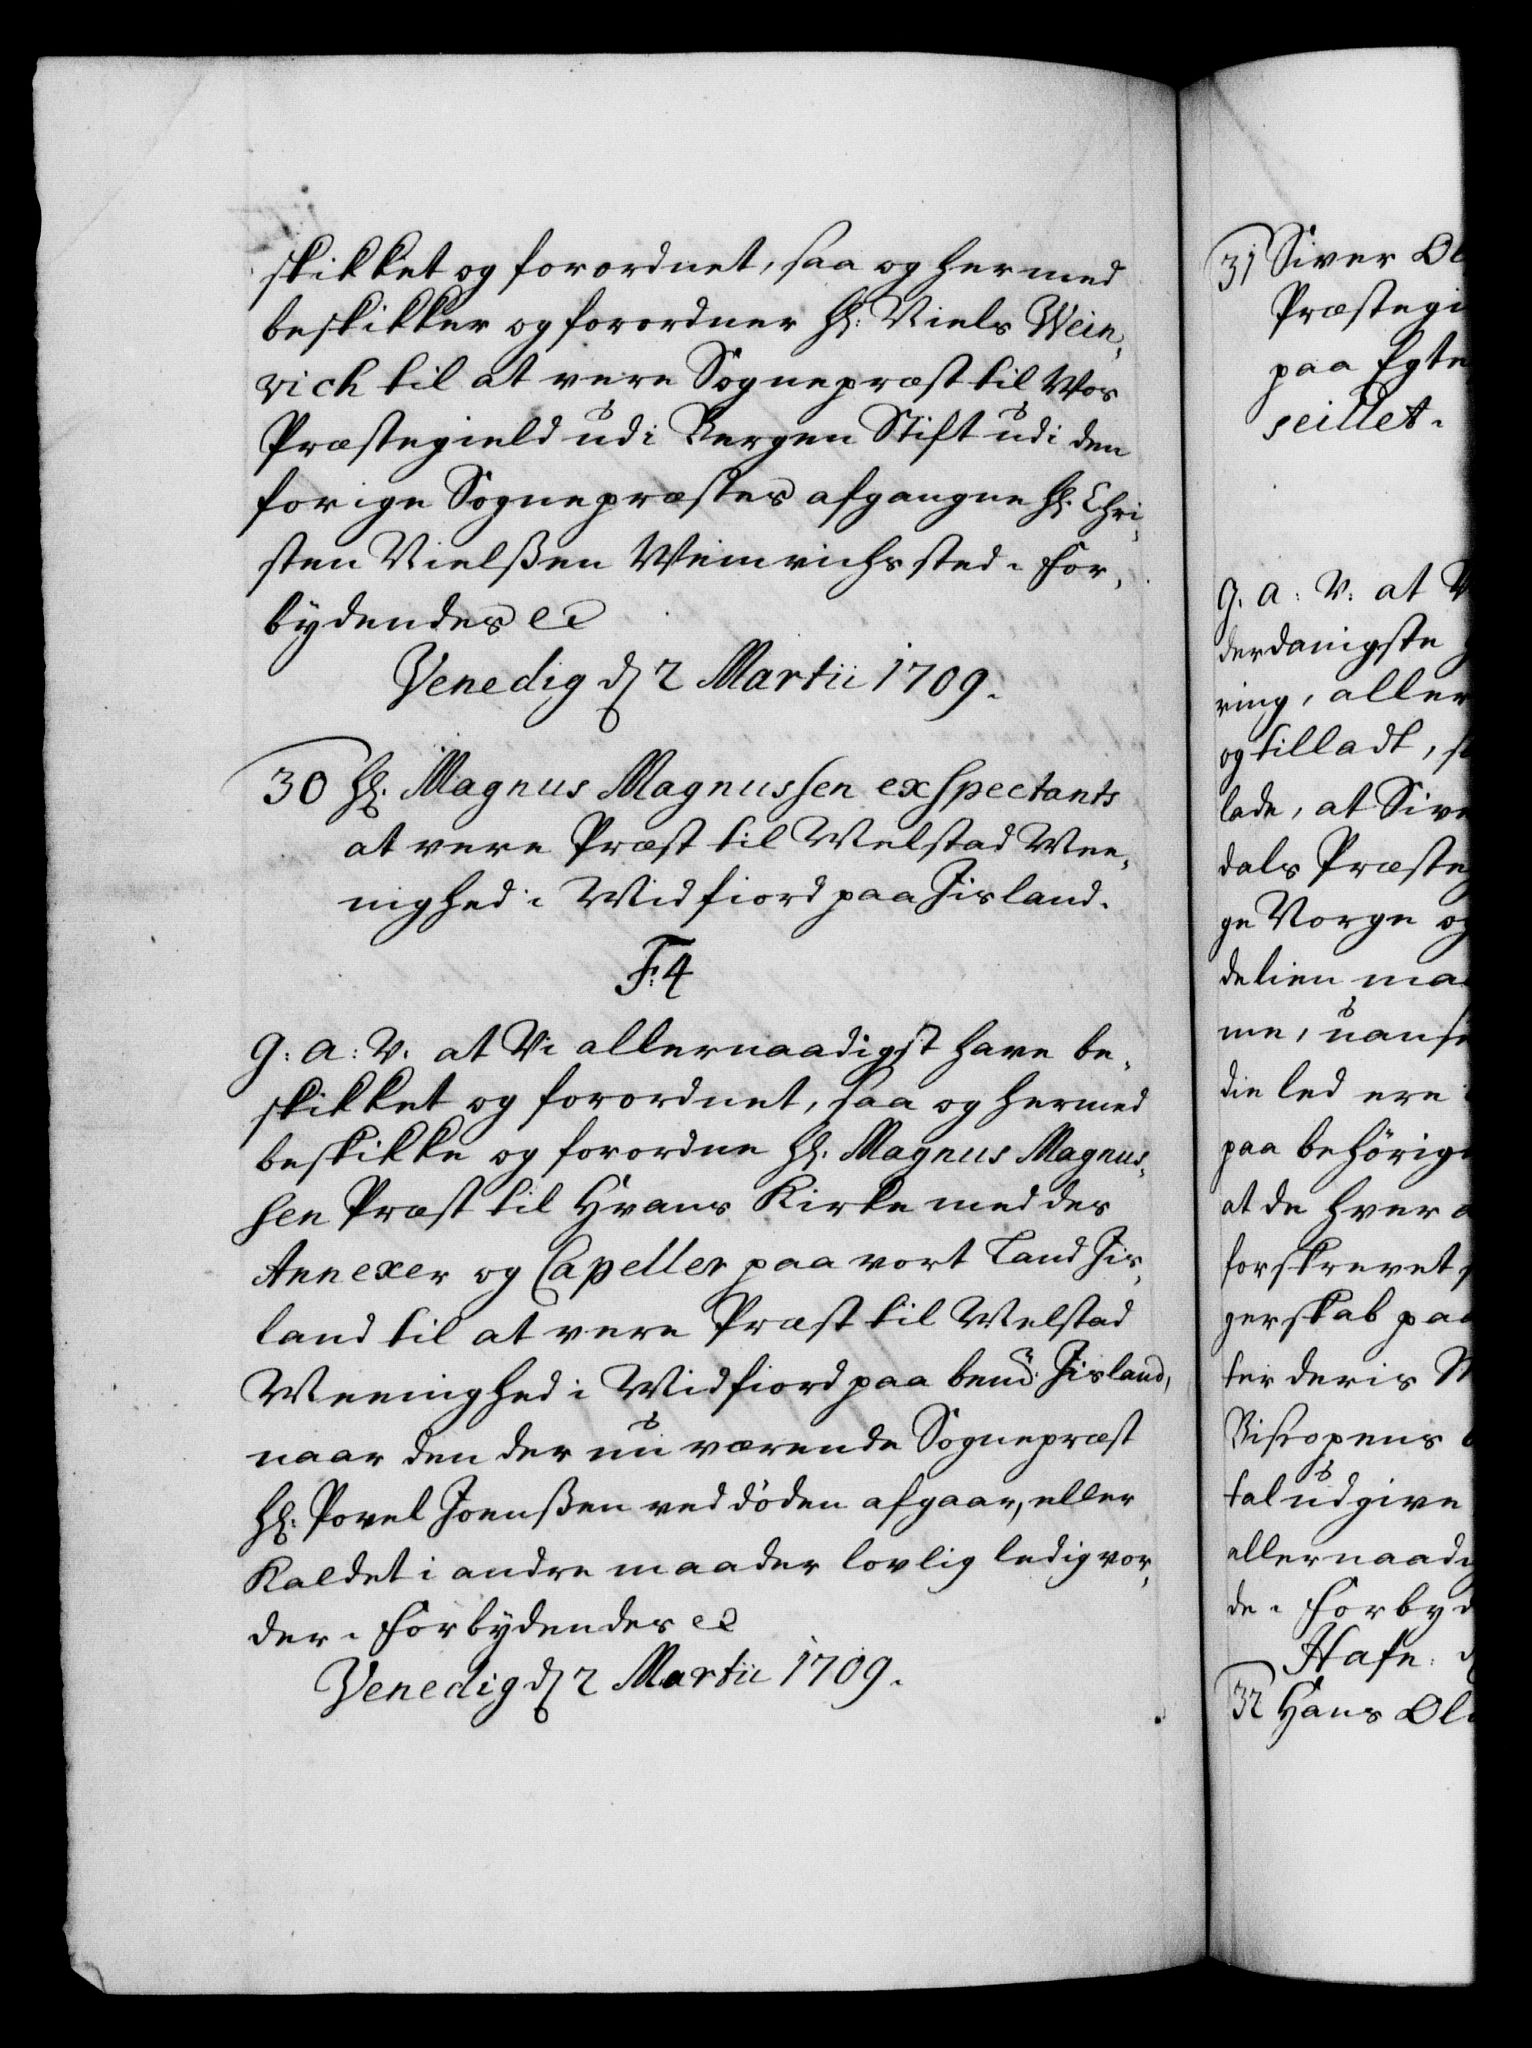 skikket og forordnet, saa og hermed
beskikker og forordner Hr: Niels Wein-
rich til at vere Sognepræst til Wos
Præstegield udi Bergen Stift udi den
forige Sognepræstes afgangne Hr. Chri-
sten Nielßen Weinrichs sted. For-
bydendes ec
Venedig d 2 Martii 1709.
30 Hr. Magnus Magnussen exspectants
at vere Præst til Welstad Wee-
nighed i Widfiord paa Jisland.
F: 4
G: A: V. at Vi allernaadigst have be-
skikket og forordnet, saa og hermed
beskikke og forordne Hr. Magnus Magnus-
sen Præst til Hvans Kirke med des
Annexer og Capeller paa vort Land Jis-
land til at vere Præst til Welstad
Weenighed i Widfiord paa bem: Jisland,
naar den der nu værende Sognepræst
Hr. Povel Joenßen ved döden afgaar, eller
Kaldet i andre maader lovlig ledig vor-
der. Forbydendes ec
Venedig d 2 Martii 1709.
31 Siver Ol
Præstegi
paa Egte
seillet.
G. A: V: at V
derdanigste
ring, aller
og tilladt, s
lade, at Sive
dals Præste
ge Norge og
delien ma
me, uanse
die led ere
paa behörige
at de hver
forskrevet
gerskab paa
ter deris
Bisropens
tal udgive
allernaadi
de. Forbyd
Hafn: d
32 Hans Ol